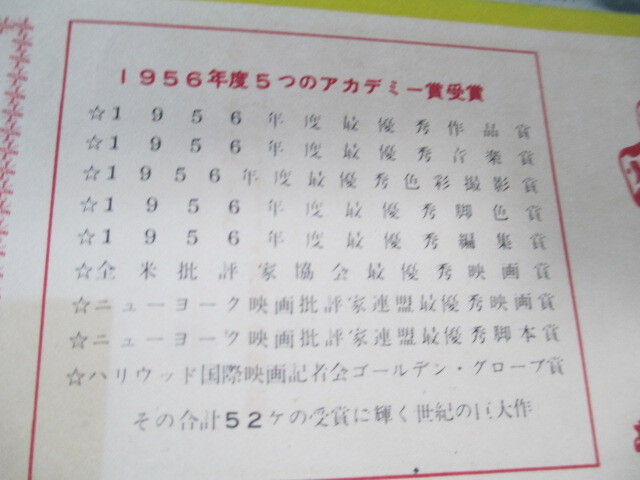 1956年度5つのアカデミー賞受賞
☆1956年度最優秀作品賞
☆1956年度最優秀音楽賞
☆1956年度最優秀色彩撮影賞
☆1956年度最優秀脚色賞
☆1956年度最優秀編集賞
☆全米批評家協会最優秀映画賞
☆ニューヨーク映画批評家連盟最優秀映画賞
☆ニューヨーク映画批評家連盟最優秀脚本賞
☆ハリウッド国際映画記者会ゴールデン・グローブ賞
その合計52ケの受賞に輝く世紀の巨大作